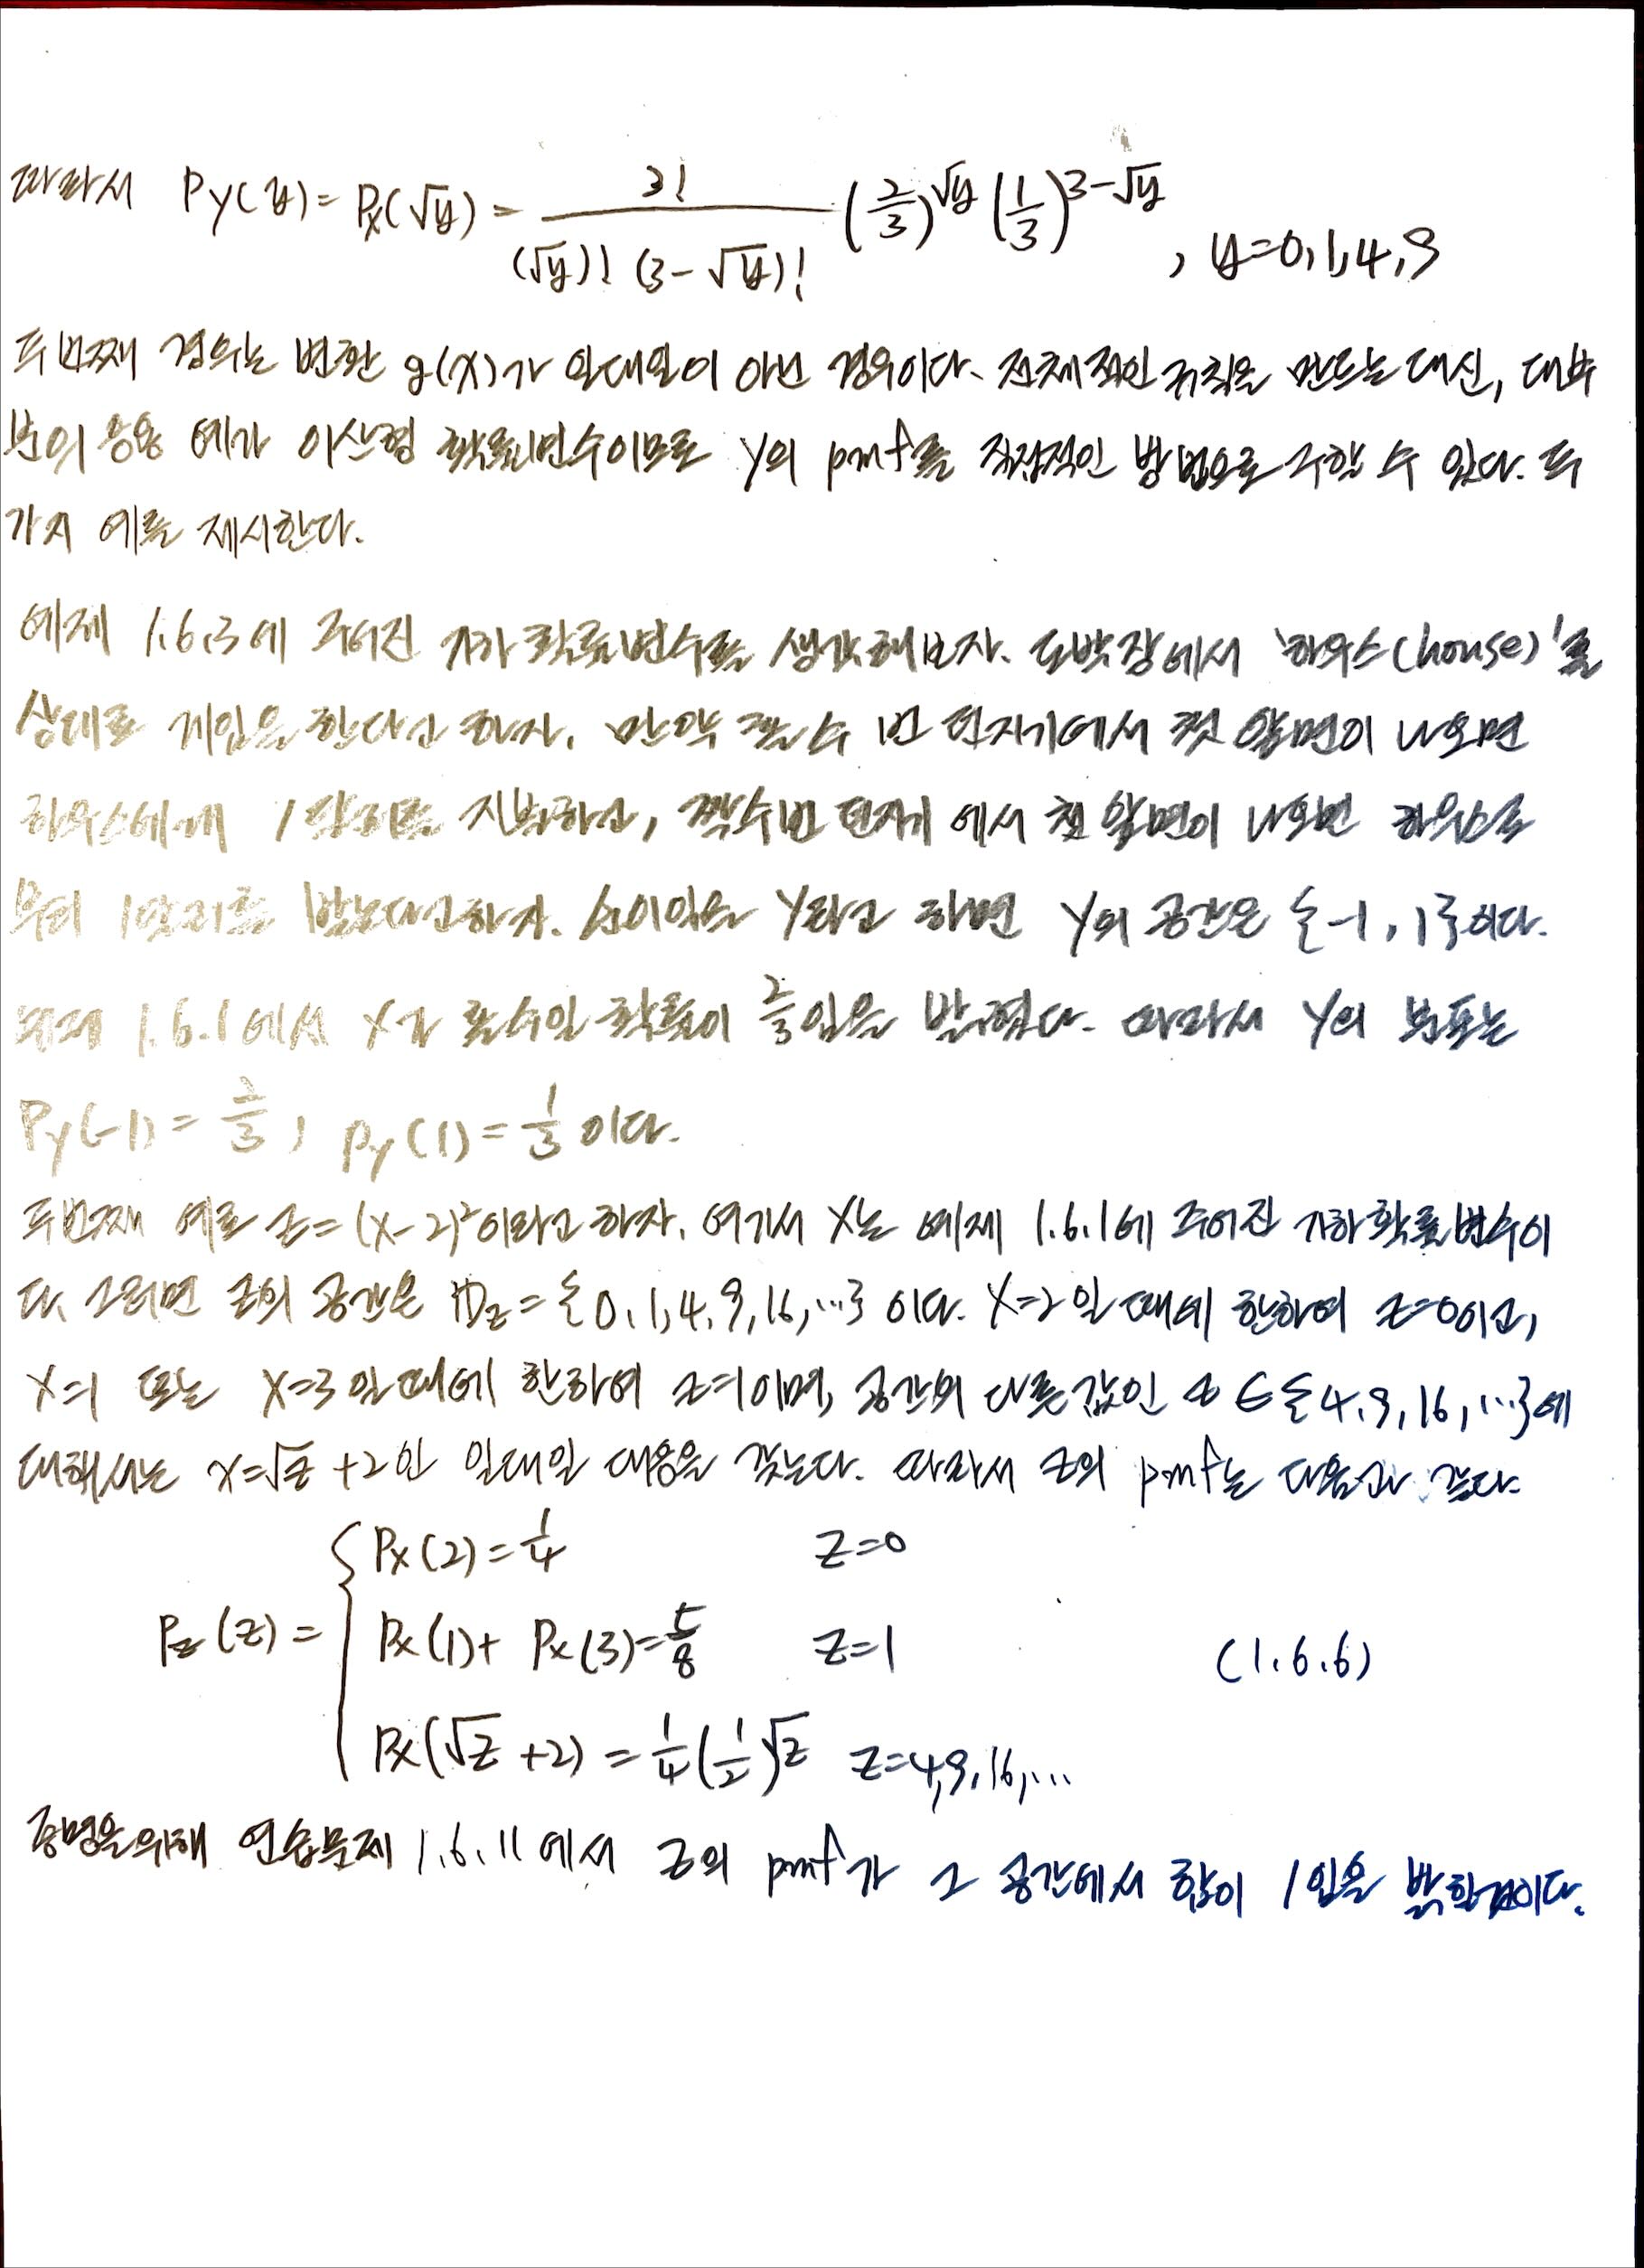 따라서 P_Y(y) = P_X(√y) = 3! / ((√y)! (3-√y)!) (2/3)^√y (1/3)^(3-√y) , y=0,1,4,9
두번째 경우는 변환 g(x)가 일대일이 아닌 경우이다. 전체적인 규칙을 만드는 대신, 대부
분의 응용 예가 이산형 확률변수이므로 Y의 pmf를 직접적인 방법으로 구할 수 있다. 두
가지 예를 제시한다.
예제 1.6.3에 주어진 기하 확률변수를 생각해보자. 도박장에서 '하우스(house)'를
상대로 게임을 한다고 하자. 만약 홀수 번 던지기에서 첫 앞면이 나오면
하우스에게 1달러를 지불하고, 짝수번 던지기에서 첫 앞면이 나오면 하우스로
부터 1달러를 받는다고하자. 순이익을 Y라고 하면 Y의 공간은 {-1, 1}이다.
예제 1.6.1에서 X가 홀수일 확률이 2/3임을 밝혔다. 따라서 Y의 분포는
P_Y(-1) = 2/3, p_Y(1) = 1/3 이다.
두번째 예로 Z=(X-2)²이라고 하자. 여기서 X는 예제 1.6.1에 주어진 기하 확률변수이
다. 그러면 Z의 공간은 D_Z = {0,1,4,9,16,…} 이다. X=2일 때에 한하여 Z=0이고,
X=1 또는 X=3일때에 한하여 Z=1이며, 공간의 다른 값인 z ∈ {4,9,16,…}에
대해서는 x=√z +2인 일대일 대응을 갖는다. 따라서 Z의 pmf는 다음과 같다.
P_X(2) = 1/4 z=0
P_Z(z) = { P_X(1) + P_X(3) = 5/8 z=1 (1.6.6)
P_X(√z +2) = 1/4 (1/2)^√z z=4,9,16,…
증명을위해 연습문제 1.6.11에서 Z의 pmf가 그 공간에서 합이 1임을 밝힐것이다.